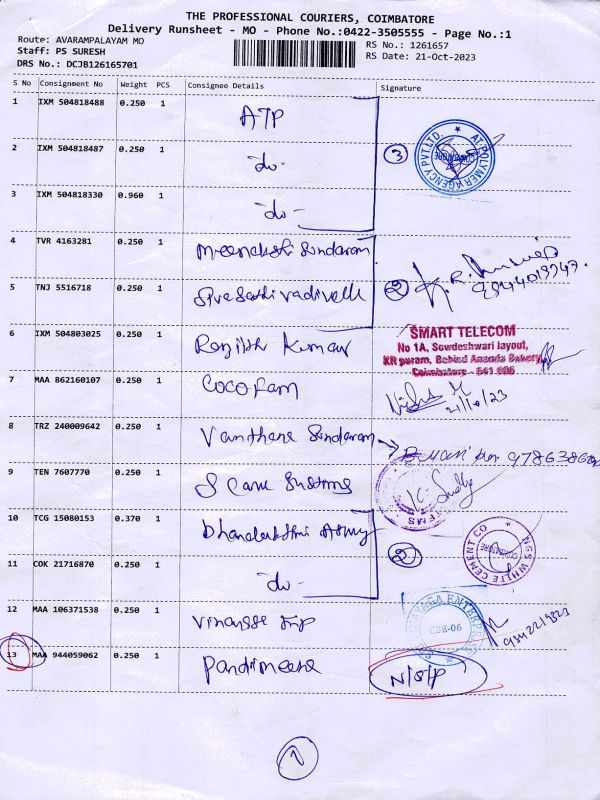 THE PROFESSIONAL COURIERS, COIMBATORE
Delivery Runsheet - MO - Phone No.:0422-3505555 - Page No.:1
Route: AVARAMPALAYAM MO
Staff: PS SURESH
DRS No.: DCJB126165701
RS No.: 1261657
RS Date: 21-Oct-2023
S No Consignment No Weight PCS Consignee Details Signature
1 IXM 504818488 0.250 1 ATP
2 IXM 504818487 0.250 1 do-
3 IXM 504818330 0.960 1 do-
3
AT POLYMER AGENCY PVT.LTD.
4 TVR 4163281 0.250 1 Meenakshi Sundaram
5 TNJ 5516718 0.250 1 Siva Sakthi vadivelk
2 K.R.
6 IXM 504803025 0.250 1 Ranjith Kumar
SMART TELECOM
No 1A, Sowdeshwari layout,
KR puram, Behind Ananda Bakery,
Coimbatore - 641 006
7 MAA 862160107 0.250 1 Coco Fam
21/10/23
8 TRZ 240009642 0.250 1 Vanthana Sundaram
9 TEN 7607770 0.250 1 S Cam Systems
10 TCG 15080153 0.370 1
11 COK 21716870 0.250 1 do-
2
NGS WHITE CEMENT CO
COIMBATORE
12 MAA 106371538 0.250 1
CBE-06
13 MAA 944059062 0.250 1 Pandimeena
N/S/P
1